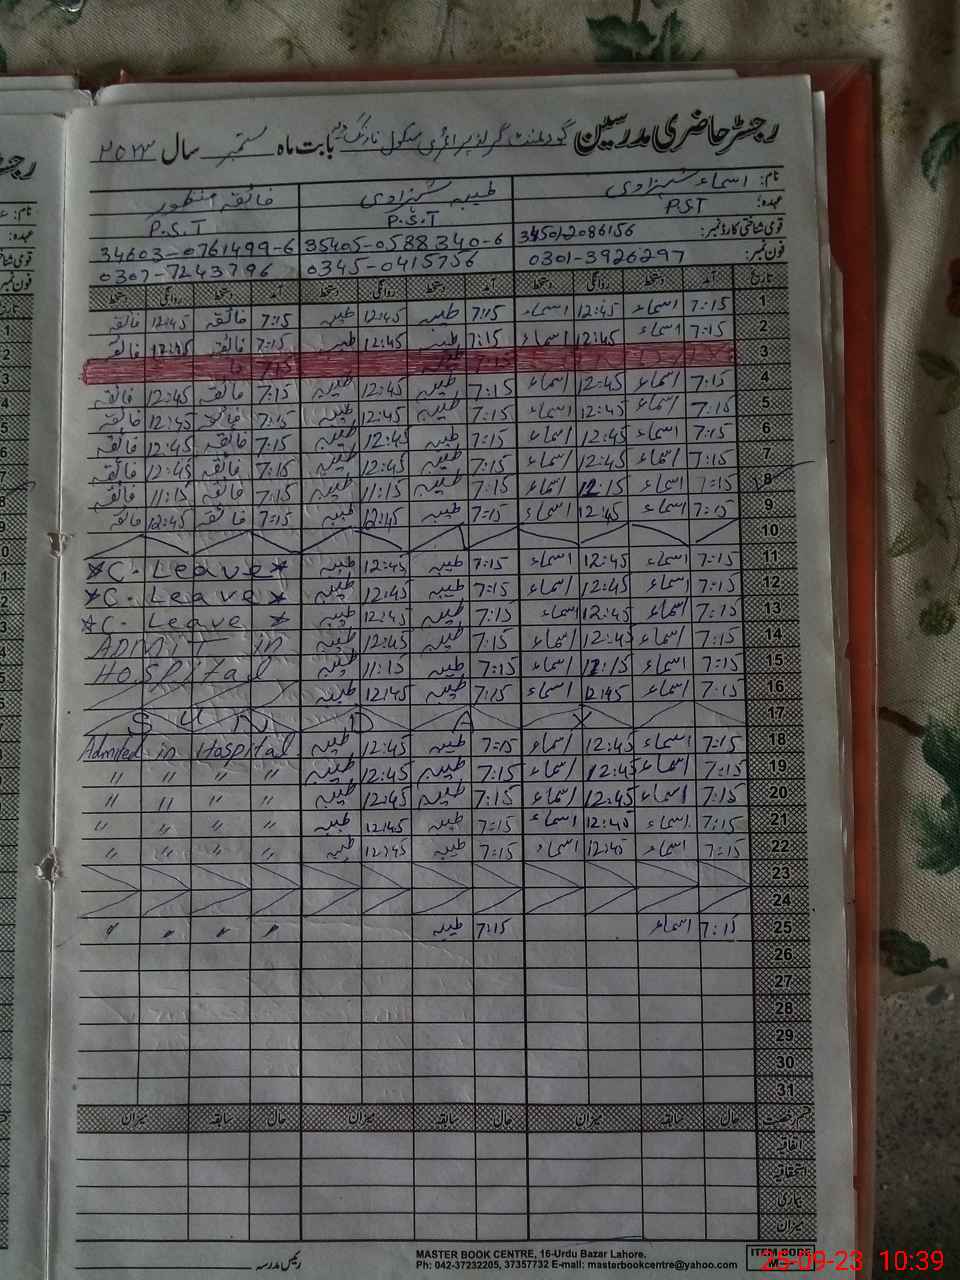 رجسٹر حاضری مدرسین گورنمنٹ گرلز پرائمری سکول نارنگ بابت ماہ ستمبر سال ۲۰۲۳
نام: اسماء شہزادی طیبہ شہزادی فائقہ منظور
عہدہ: PST P.S.T P.S.T
قومی شناختی کارڈ نمبر: 35405-0588340-6 34603-0761499-6
فون نمبر: 0301-3926297 0345-0415756 0307-7243796
تاریخ آمد دستخط روانگی دستخط آمد دستخط روانگی دستخط آمد دستخط روانگی دستخط
1 7:15 اسماء 12:45 اسماء 7:15 طیبہ 12:45 طیبہ 7:15 فائقہ 12:45 فائقہ
2 7:15 اسماء 12:45 اسماء 7:15 طیبہ 12:45 طیبہ 7:15 فائقہ 12:45 فائقہ
3 7:15 7:15
4 7:15 اسماء 12:45 اسماء 7:15 طیبہ 12:45 طیبہ 7:15 فائقہ 12:45 فائقہ
5 7:15 اسماء 12:45 اسماء 7:15 طیبہ 12:45 طیبہ 7:15 فائقہ 12:45 فائقہ
6 7:15 اسماء 12:45 اسماء 7:15 طیبہ 12:45 طیبہ 7:15 فائقہ 12:45 فائقہ
7 7:15 اسماء 12:45 اسماء 7:15 طیبہ 12:45 طیبہ 7:15 فائقہ 12:45 فائقہ
8 7:15 اسماء 12:15 اسماء 7:15 طیبہ 11:15 طیبہ 7:15 فائقہ 11:15 فائقہ
9 7:15 اسماء 12:45 اسماء 7:15 طیبہ 12:45 طیبہ 7:15 فائقہ 12:45 فائقہ
10
11 7:15 اسماء 12:45 اسماء 7:15 طیبہ 12:45 طیبہ *C. Leave*
12 7:15 اسماء 12:45 اسماء 7:15 طیبہ 12:45 طیبہ *C. Leave*
13 7:15 اسماء 12:45 اسماء 7:15 طیبہ 12:45 طیبہ *C. Leave*
14 7:15 اسماء 12:45 اسماء 7:15 طیبہ 12:45 طیبہ ADMIT in
15 7:15 اسماء 12:15 اسماء 7:15 طیبہ 11:15 طیبہ Hospital
16 7:15 اسماء 12:45 اسماء 7:15 طیبہ 12:45 طیبہ
17 SUNDAY
18 7:15 اسماء 12:45 اسماء 7:15 طیبہ 12:45 طیبہ Admited in Hospital
19 7:15 اسماء 12:45 اسماء 7:15 طیبہ 12:45 طیبہ " " " "
20 7:15 اسماء 12:45 اسماء 7:15 طیبہ 12:45 طیبہ " " " "
21 7:15 اسماء 12:45 اسماء 7:15 طیبہ 12:45 طیبہ " " " "
22 7:15 اسماء 12:45 اسماء 7:15 طیبہ 12:45 طیبہ " " " "
23
24
25 7:15 اسماء 7:15 طیبہ " " " "
26
27
28
29
30
31
قسم رخصت حال سابقہ میزان حال سابقہ میزان حال سابقہ میزان
اتفاقیہ
استحقاقیہ
بیماری
میزان
رئیس مدرسہ
MASTER BOOK CENTRE, 16-Urdu Bazar Lahore.
Ph: 042-37232205, 37357732 E-mail: masterbookcentre@yahoo.com
ITEM CODE
25-09-23 10:39